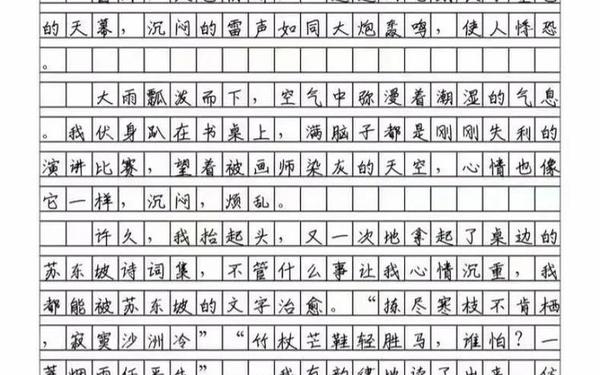 的天幕，沉闷的雷声如同大炮轰鸣，使人悸恐
。
大雨瓢泼而下，空气中弥漫着潮湿的气息
。我伏身趴在书桌上，满脑子都是刚刚失利的
演讲比赛，望着被画师染灰的天空，心情也像
它一样，沉闷，烦乱。
许久，我抬起头，又一次地拿起了桌边的
苏东坡诗词集，不管什么事让我心情沉重，我
都能被苏东坡的文字治愈。“拣尽寒枝不肯栖
，寂寞沙洲冷”“竹杖芒鞋轻胜马，谁怕？一
蓑烟雨任平生”